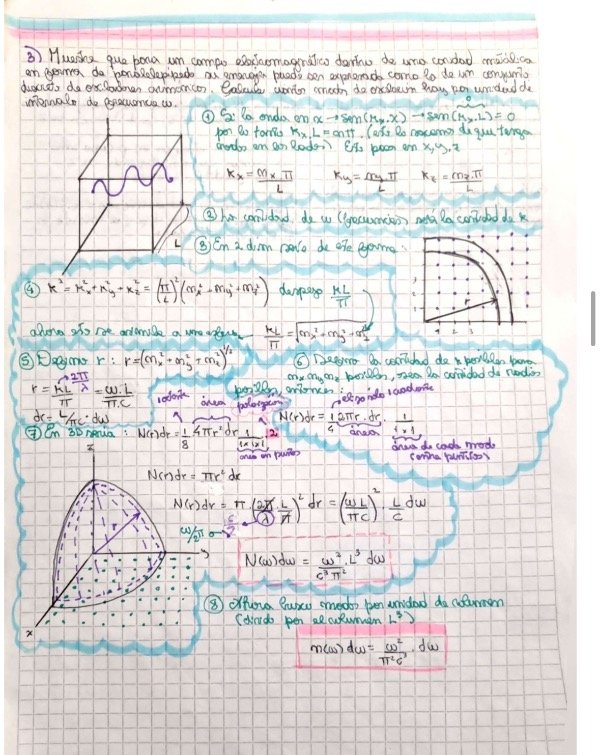 3) Muestre que para un campo electromagnético dentro de una cavidad metálica
en forma de paralelepípedo su energía puede ser expresada como la de un conjunto
discreto de osciladores armónicos. Calcule cuántos modos de oscilación hay por unidad de
intervalo de frecuencia ω.
① Si la onda en x → sen(kx.x) → sen(kx.L) = 0
por lo tanto kx.L = nπ. (esto lo sacamos de que tenga
nodos en los lados) Esto pasa en x, y, z
kx = mx.π/L   ky = my.π/L   kz = mz.π/L
L
② La cantidad de ω (frecuencias) será la cantidad de k
③ En 2 dim sería de esta forma:
r
④ k² = kx² + ky² + kz² = (π/L)² (mx² + my² + mz²) despejo kL/π
ahora esto se asimila a una esfera kL/π = √mx² + my² + mz²
⑤ Defino r: r = (mx² + my² + mz²)^1/2
r = kL/π = ω.L/π.c
2π/λ
dr = L/πc . dω
⑥ Defino la cantidad de k posibles para
mx my mz posibles, o sea la cantidad de modos
posibles entonces:
el solo 1 cuadrante
N(r)dr = 1/4 2πr.dr . 1/1x1
área
área de cada modo
(entre puntitos)
⑦ En 3D sería: N(r)dr = 1/8 4πr² dr 1/1x1x1 . 2
1 octante
área
polarización
área en puntos
N(r)dr = πr² dr
N(r)dr = π . (2π/λ . L/π)² dr = (ωL/πc)² . L/c dω
ω/2π
c/λ
N(ω)dω = ω²/c³π² . L³ dω
z
y
x
r
⑧ Ahora busco modos por unidad de volumen
(divido por el volumen L³)
n(ω) dω = ω²/π²c³ . dω